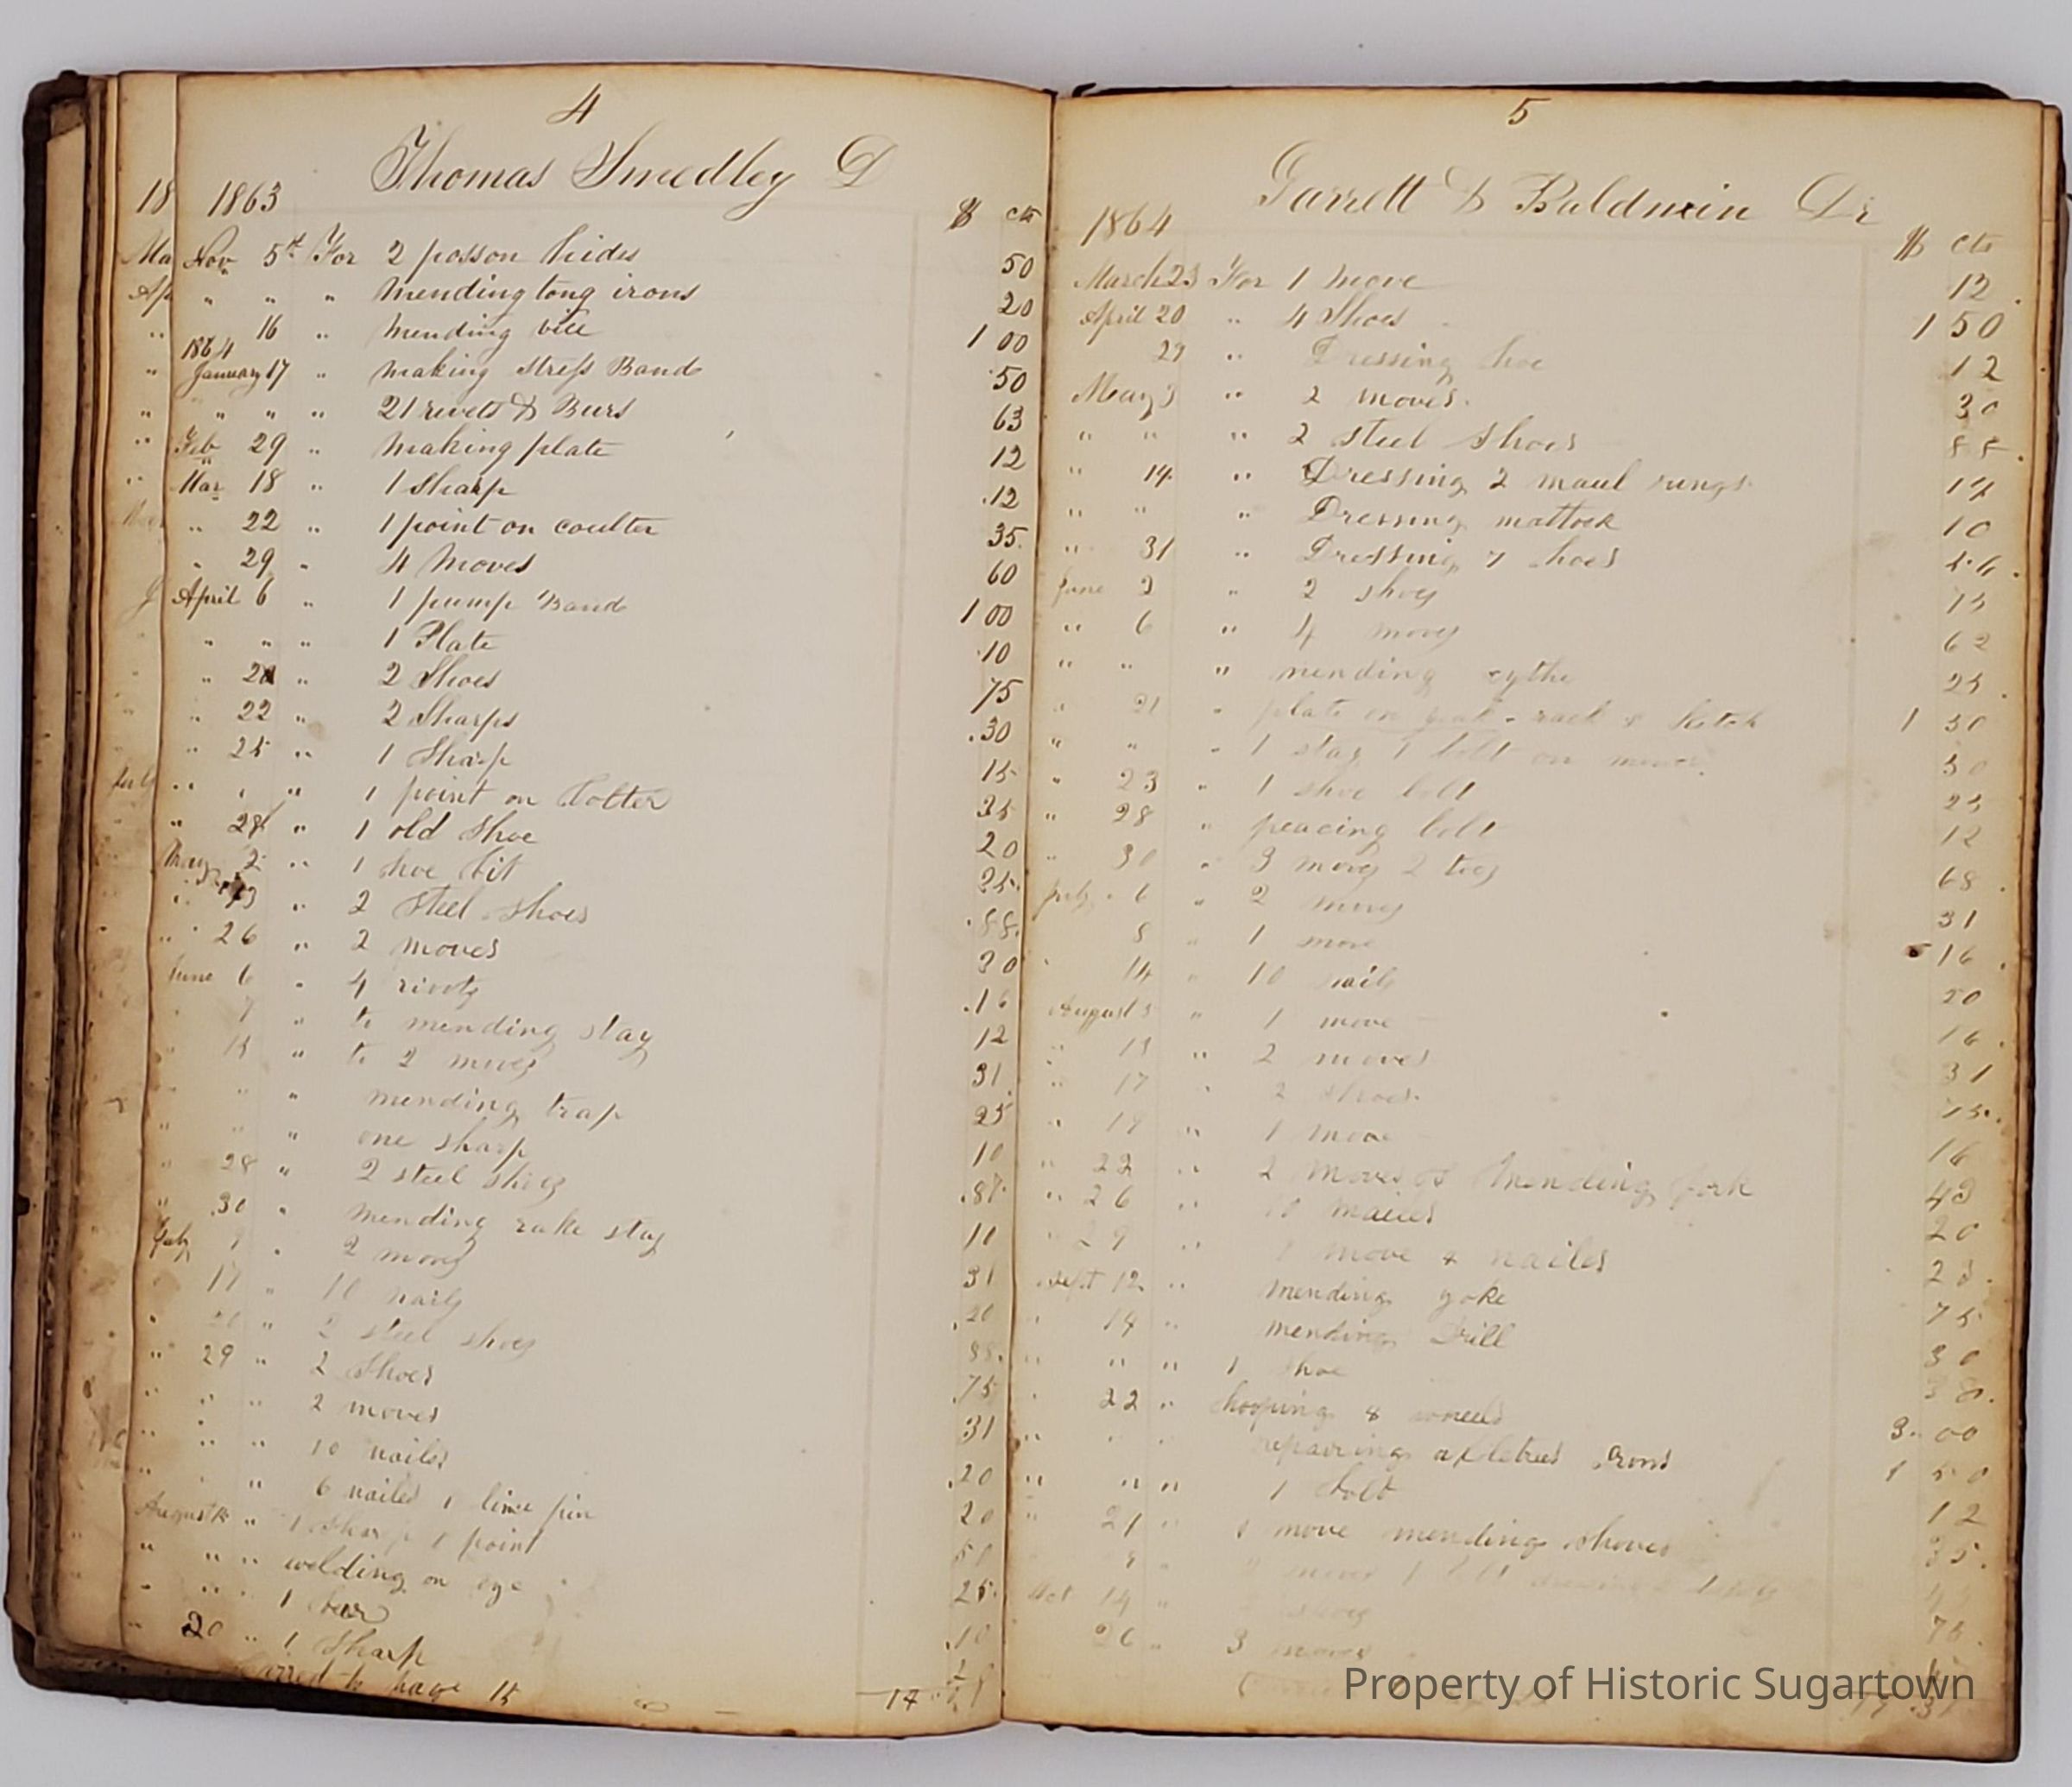 4
Thomas Smedley D
18
1863
$ cts
Ma
Nov 5th For 2 posson hides 50
Ap
" " " mending tong irons 20
" 16 " mending vice 1 00
1864
January 17 " making stress Band 50
" " " 21 rivets & Burs 63
Feb 29 " making plate 12
Mar 18 " 1 Sharp 12
" 22 " 1 point on coulter 35
" 29 " 4 Moves 60
April 6 " 1 pump Band 1 00
" " " 1 Plate 10
" " 2 Shoes 75
" 22 " 2 Sharps 30
" 25 " 1 Sharp 15
" " " 1 point on Colter 35
" 28 " 1 old Shoe 20
May 2 " 1 shoe bit 25
" " 2 Steel Shoes 88
" 26 " 2 moves 30
June 6 " 4 rivets 16
" 7 " to mending stay 12
" 15 " to 2 moves 31
" " " mending trap 25
" " " one sharp 10
" 28 " 2 steel shoes 87
" 30 " mending rake stay 10
July 9 " 2 moves 31
17 " 10 nails 20
" " 2 steel shoes 88
" 29 " 2 Shoes 75
" " " 2 moves 31
" " " 10 nailes 20
" " " 6 nailes 1 line pin 20
August " 1 Sharp 1 point 50
" " " welding on eye 25
" " " 1 10
" 20 " 1 Sharp
to page 15 17
5
Garrett & Baldwin Dr
1864
$ cts
March 23 For 1 move 12
April 20 " 4 Shoes 1 50
29 " Dressing shoe 12
May 3 " 2 moves 30
" " " 2 steel shoes 88
" 14 " Dressing 2 maul rings
" " " Dressing mattock 10
" 31 " Dressing 7 shoes 56
June 2 " 2 shoes 75
" 6 " 4 moves 62
" " " mending cythe 25
" 21 " plate on rack & 1 50
" " " 1 stay 1 bolt on 50
" 23 " 1 shoe bolt 25
" 28 " peacing bolt 12
" 30 " 3 moves 2 toes 68
July 6 " 2 moves 31
8 " 1 move 16
14 " 10 nails 20
August 5 " 1 move 16
" 15 " 2 moves 31
" 17 " 2 shoes 75
" 19 " 1 move 16
" 22 " 2 moves & Mending fork 43
" 26 " 10 nailes 20
" 29 " 1 move 4 nailes 23
Sept 12 " mending yoke 75
" 14 " mending Drill 30
" " " 1 shoe 38
" 22 " hooping 8 wheels 3 00
" " " repairing axletrees irons 1 50
" " " 1 bolt 12
" " 1 move mending shovel 35
Oct 14 " 75
26 " 3 moves
Property of Historic Sugartown